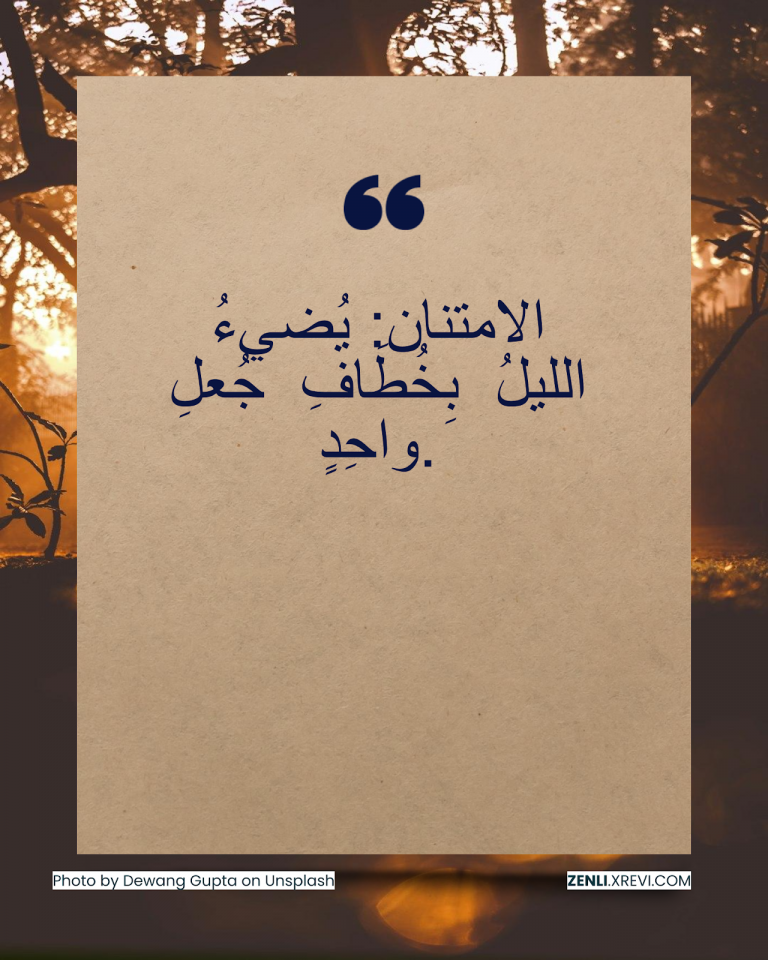 الامتنان: يُضيءُ
الليلُ بِخُطَافِ جُعلِ
واحِدٍ.
Photo by Dewang Gupta on Unsplash
ZENLI.XREVI.COM